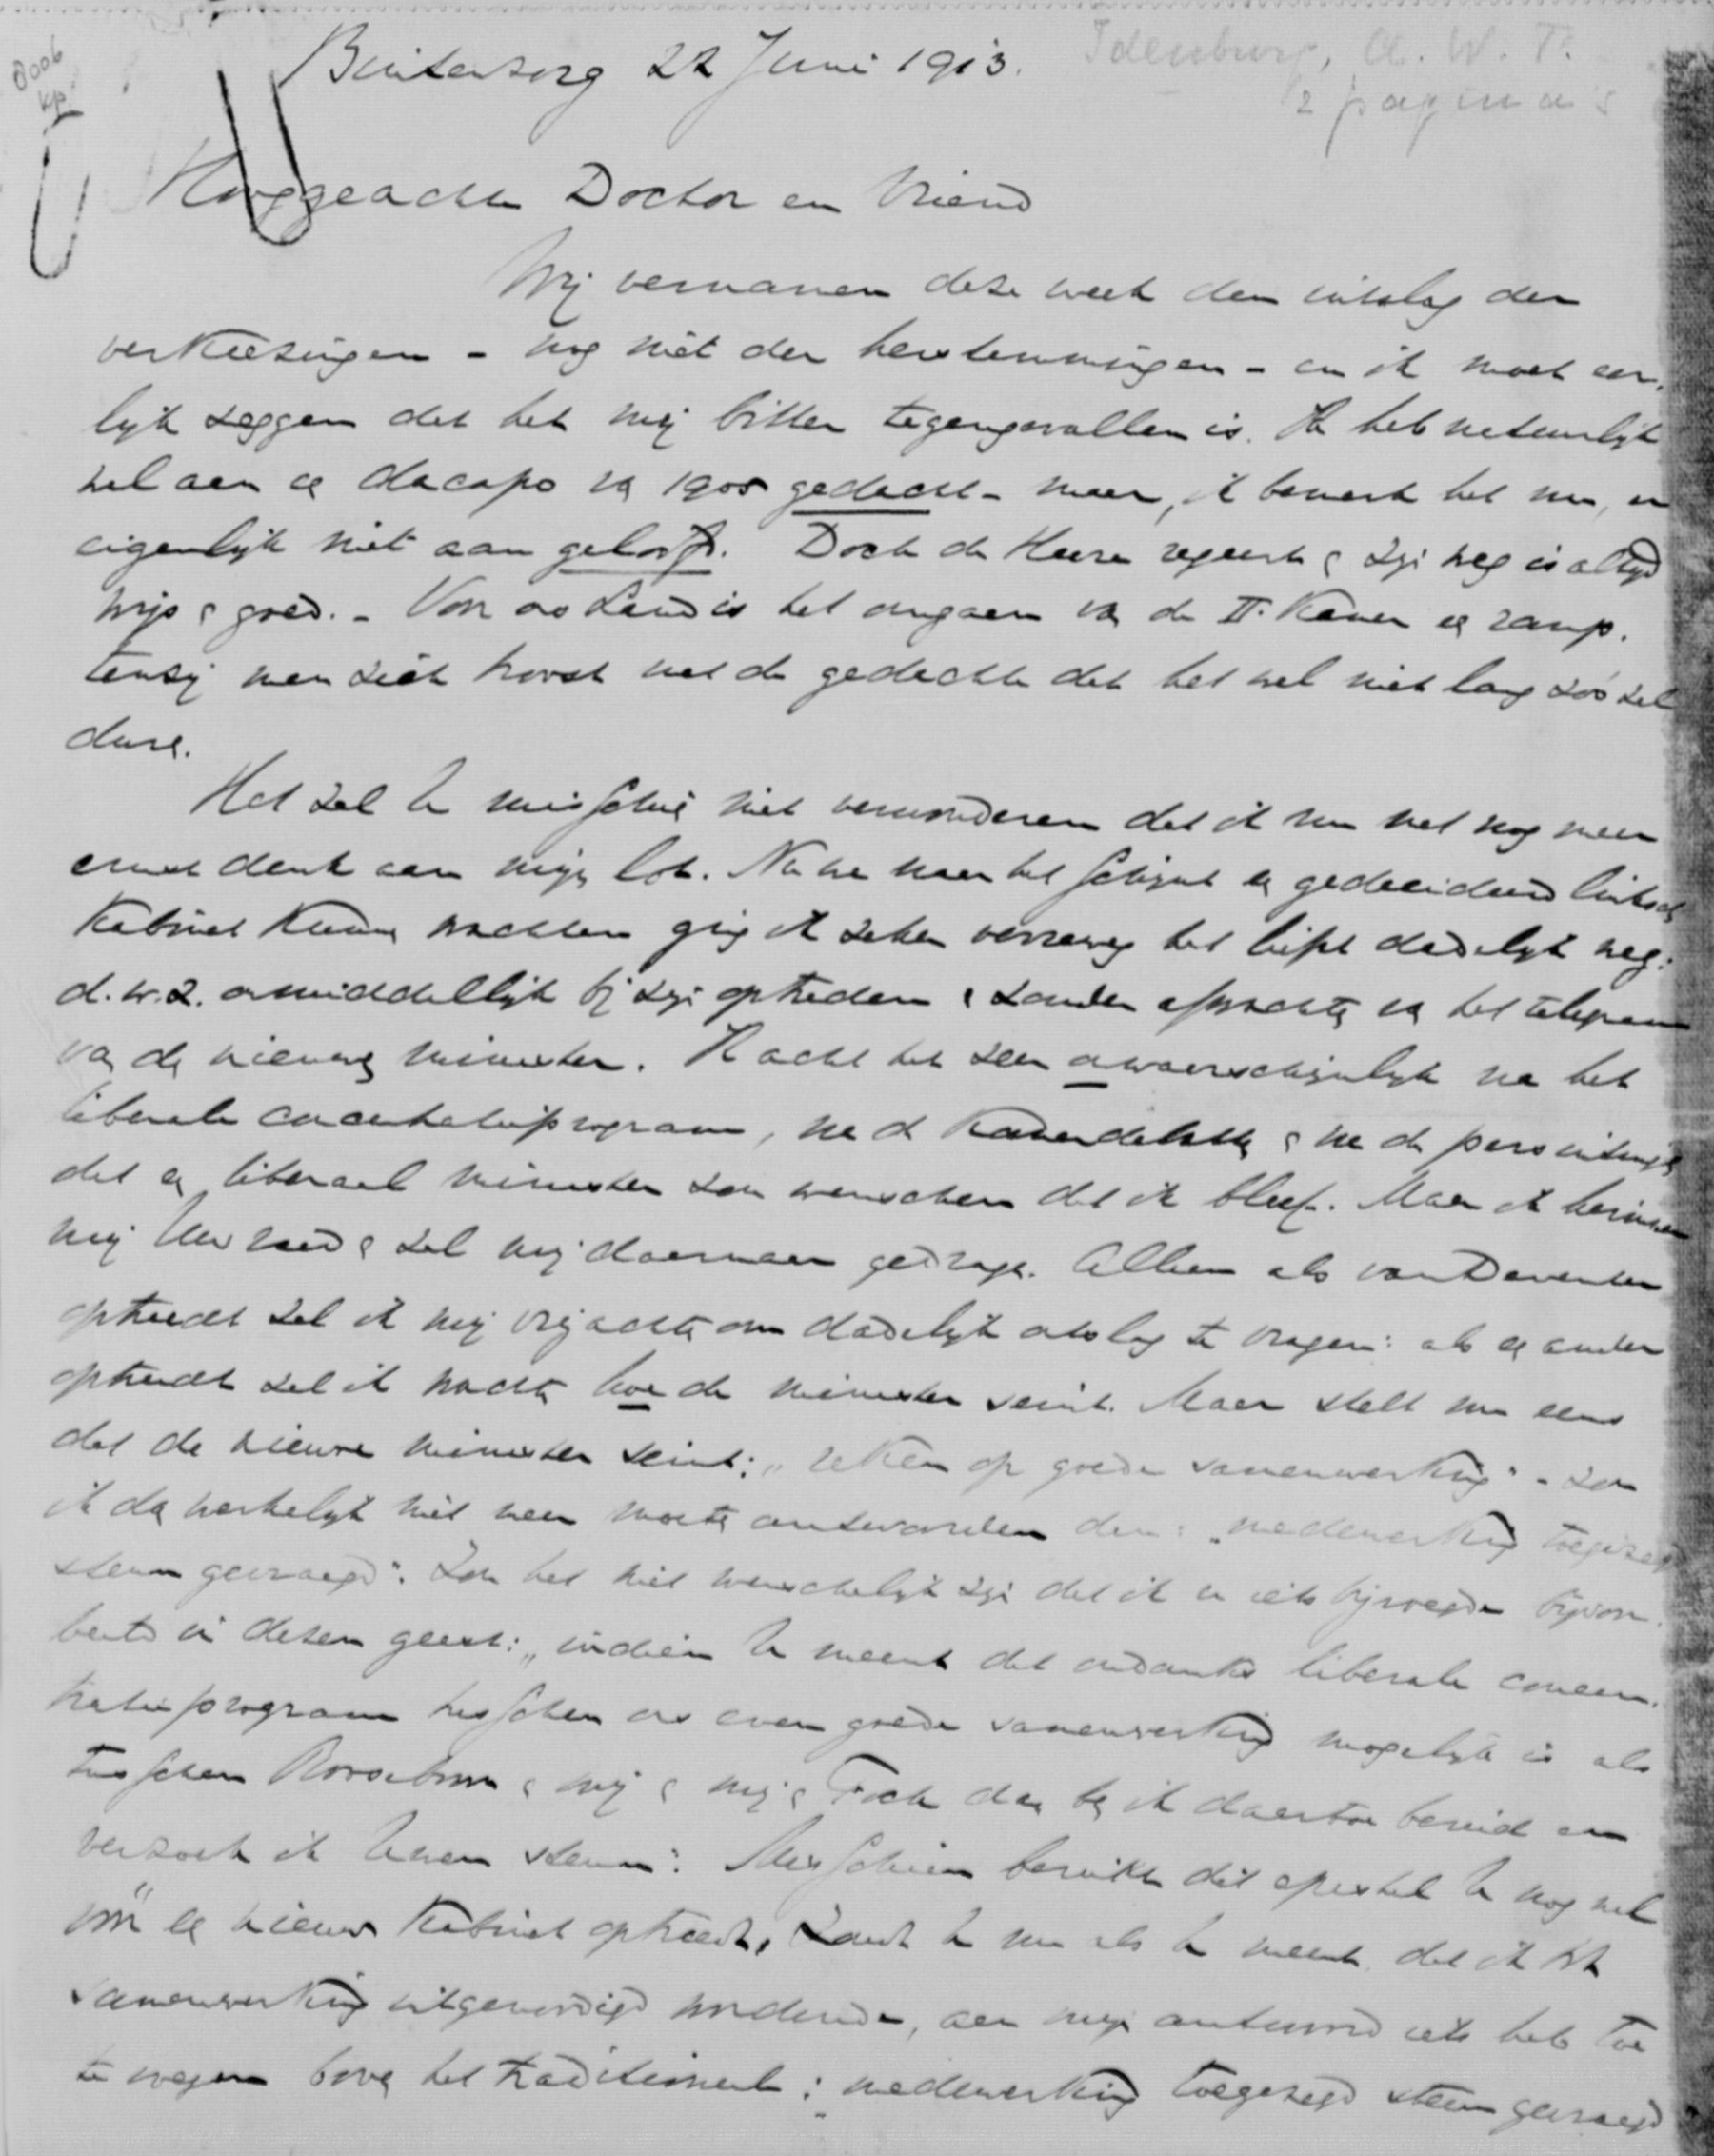 8006
kp
Idenburg, A. W. F.
2 pagina's
Buitenzorg 22 Juni 1913.
Hooggeachte Doctor en Vriend
Wij vernamen deze week den uitslag der
verkiezingen - nog niet der herstemmingen - en ik moet eer-
lijk zeggen dat het mij bitter tegengevallen is. Ik heb natuurlijk
wel aan een dacapo van 1905 gedacht - maar, ik bemerk het nu, er
eigenlijk niet aan geloofd. Doch de Heere regeert en Zijn weg is altijd
wijs en goed. - Voor ons Land is het omgaan van de II. Kamer een ramp.
tenzij men zich troost met de gedachte dat het wel niet lang zóó zal
duren.
Het zal U misschien niet verwonderen dat ik nu met nog meer
ernst denk aan mijn lot. Nu we naar het schijnt een gedecideerd linksch
Kabinet kunnen wachten ging ik zeker verreweg het liefst dadelijk weg:
d.w.z. onmiddellijk bij zijn optreden en zonder afwachten van het telegram
van den nieuwen minister. Ik acht het zeer onwaarschijnlijk na het
liberale concentratieprogram, na de Kamerdebatten en na de persuitingen
dat een liberaal minister zou wenschen dat ik bleef. Maar ik herinner
mij Uw raad en zal mij daarnaar gedragen. Alleen als van Deventer
optreedt zal ik mij vrij achten om dadelijk ontslag te vragen: als een ander
optreedt zal ik wachten hoe de minister seint. Maar stelt nu eens
dat de nieuwe minister seint: „reken op goede samenwerking" - zou
ik dan werkelijk niet meer moeten antwoorden dan: „medewerking toegezegd
steun gevraagd". Zou het niet wenschelijk zijn dat ik er iets bijvoegde bijvoor-
beeld in dezen geest: „indien U meent dat ondanks liberale concen-
tratieprogram tusschen ons even goede samenwerking mogelijk is als
tusschen Rooseboom en mij en mij en Fock dan ben ik daartoe bereid en
verzoek ik Uwen steun". Misschien bereikt dit epistel U nog wel
vóór een nieuw Kabinet optreedt. Zoudt U nu als U meent, dat ik tot
samenwerking uitgenoodigd wordende, aan mijn antwoord iets heb toe
te voegen boven het traditioneele: „medewerking toegezegd steun gevraagd